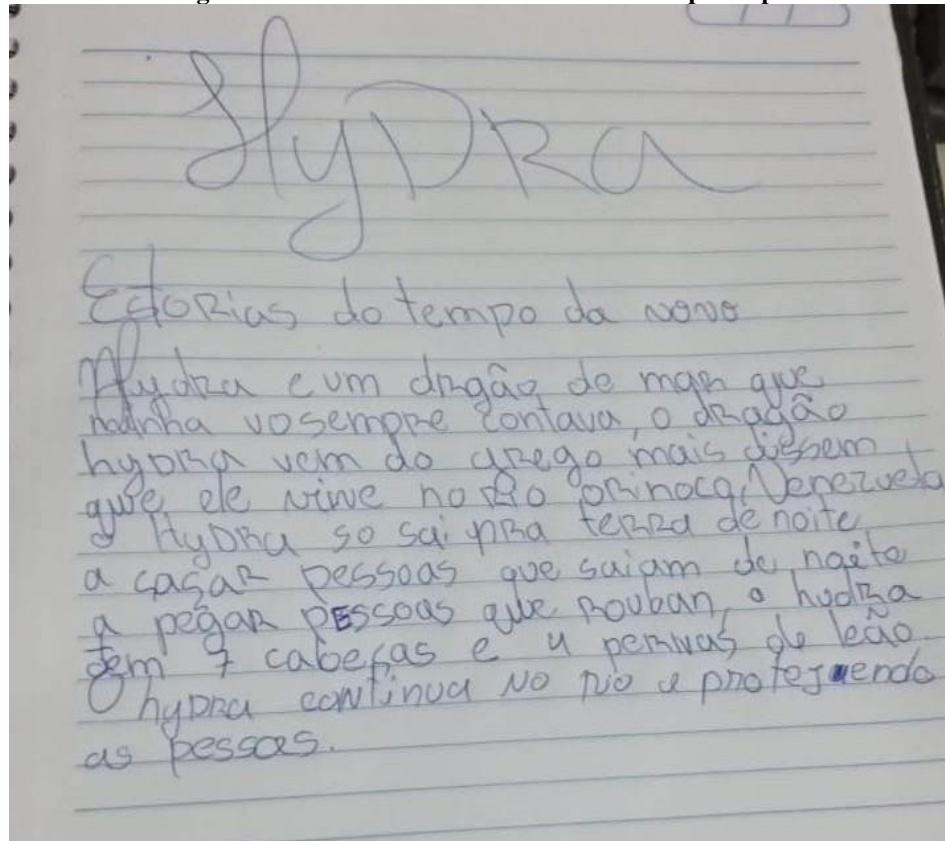 HyDRa
EstoRias do tempo da vovo
Hydra e um dragão de mar que
madinha vo sempre contava, o dragão
hydra vem do grego mais dissem
que ele vive no Rio Orinoco, Venezuela
o HyDRa so sai pra terra de noite
a caçar pessoas que saiam de noite
a pegar pessoas que rouban, o hydra
tem 7 cabeças e 4 pernas de leão
O hydra continua no rio e protejuendo
as pessoas.